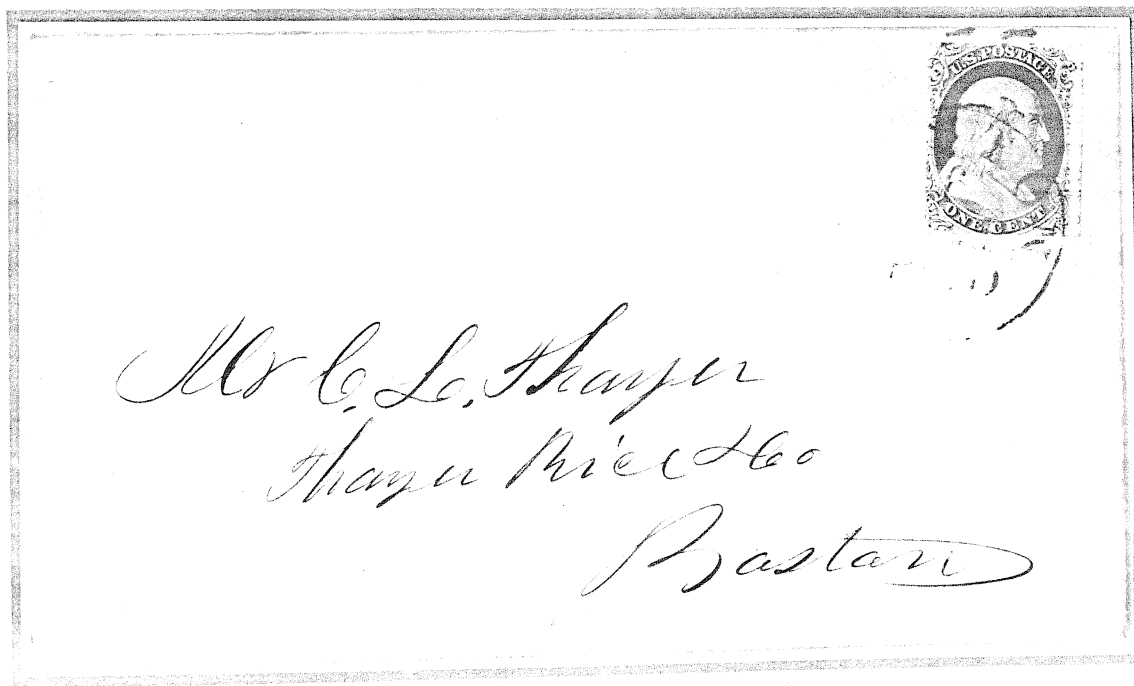 U.S. POSTAGE
ONE CENT
Mr C. L. Thayer
Thayer Rice & Co
Boston